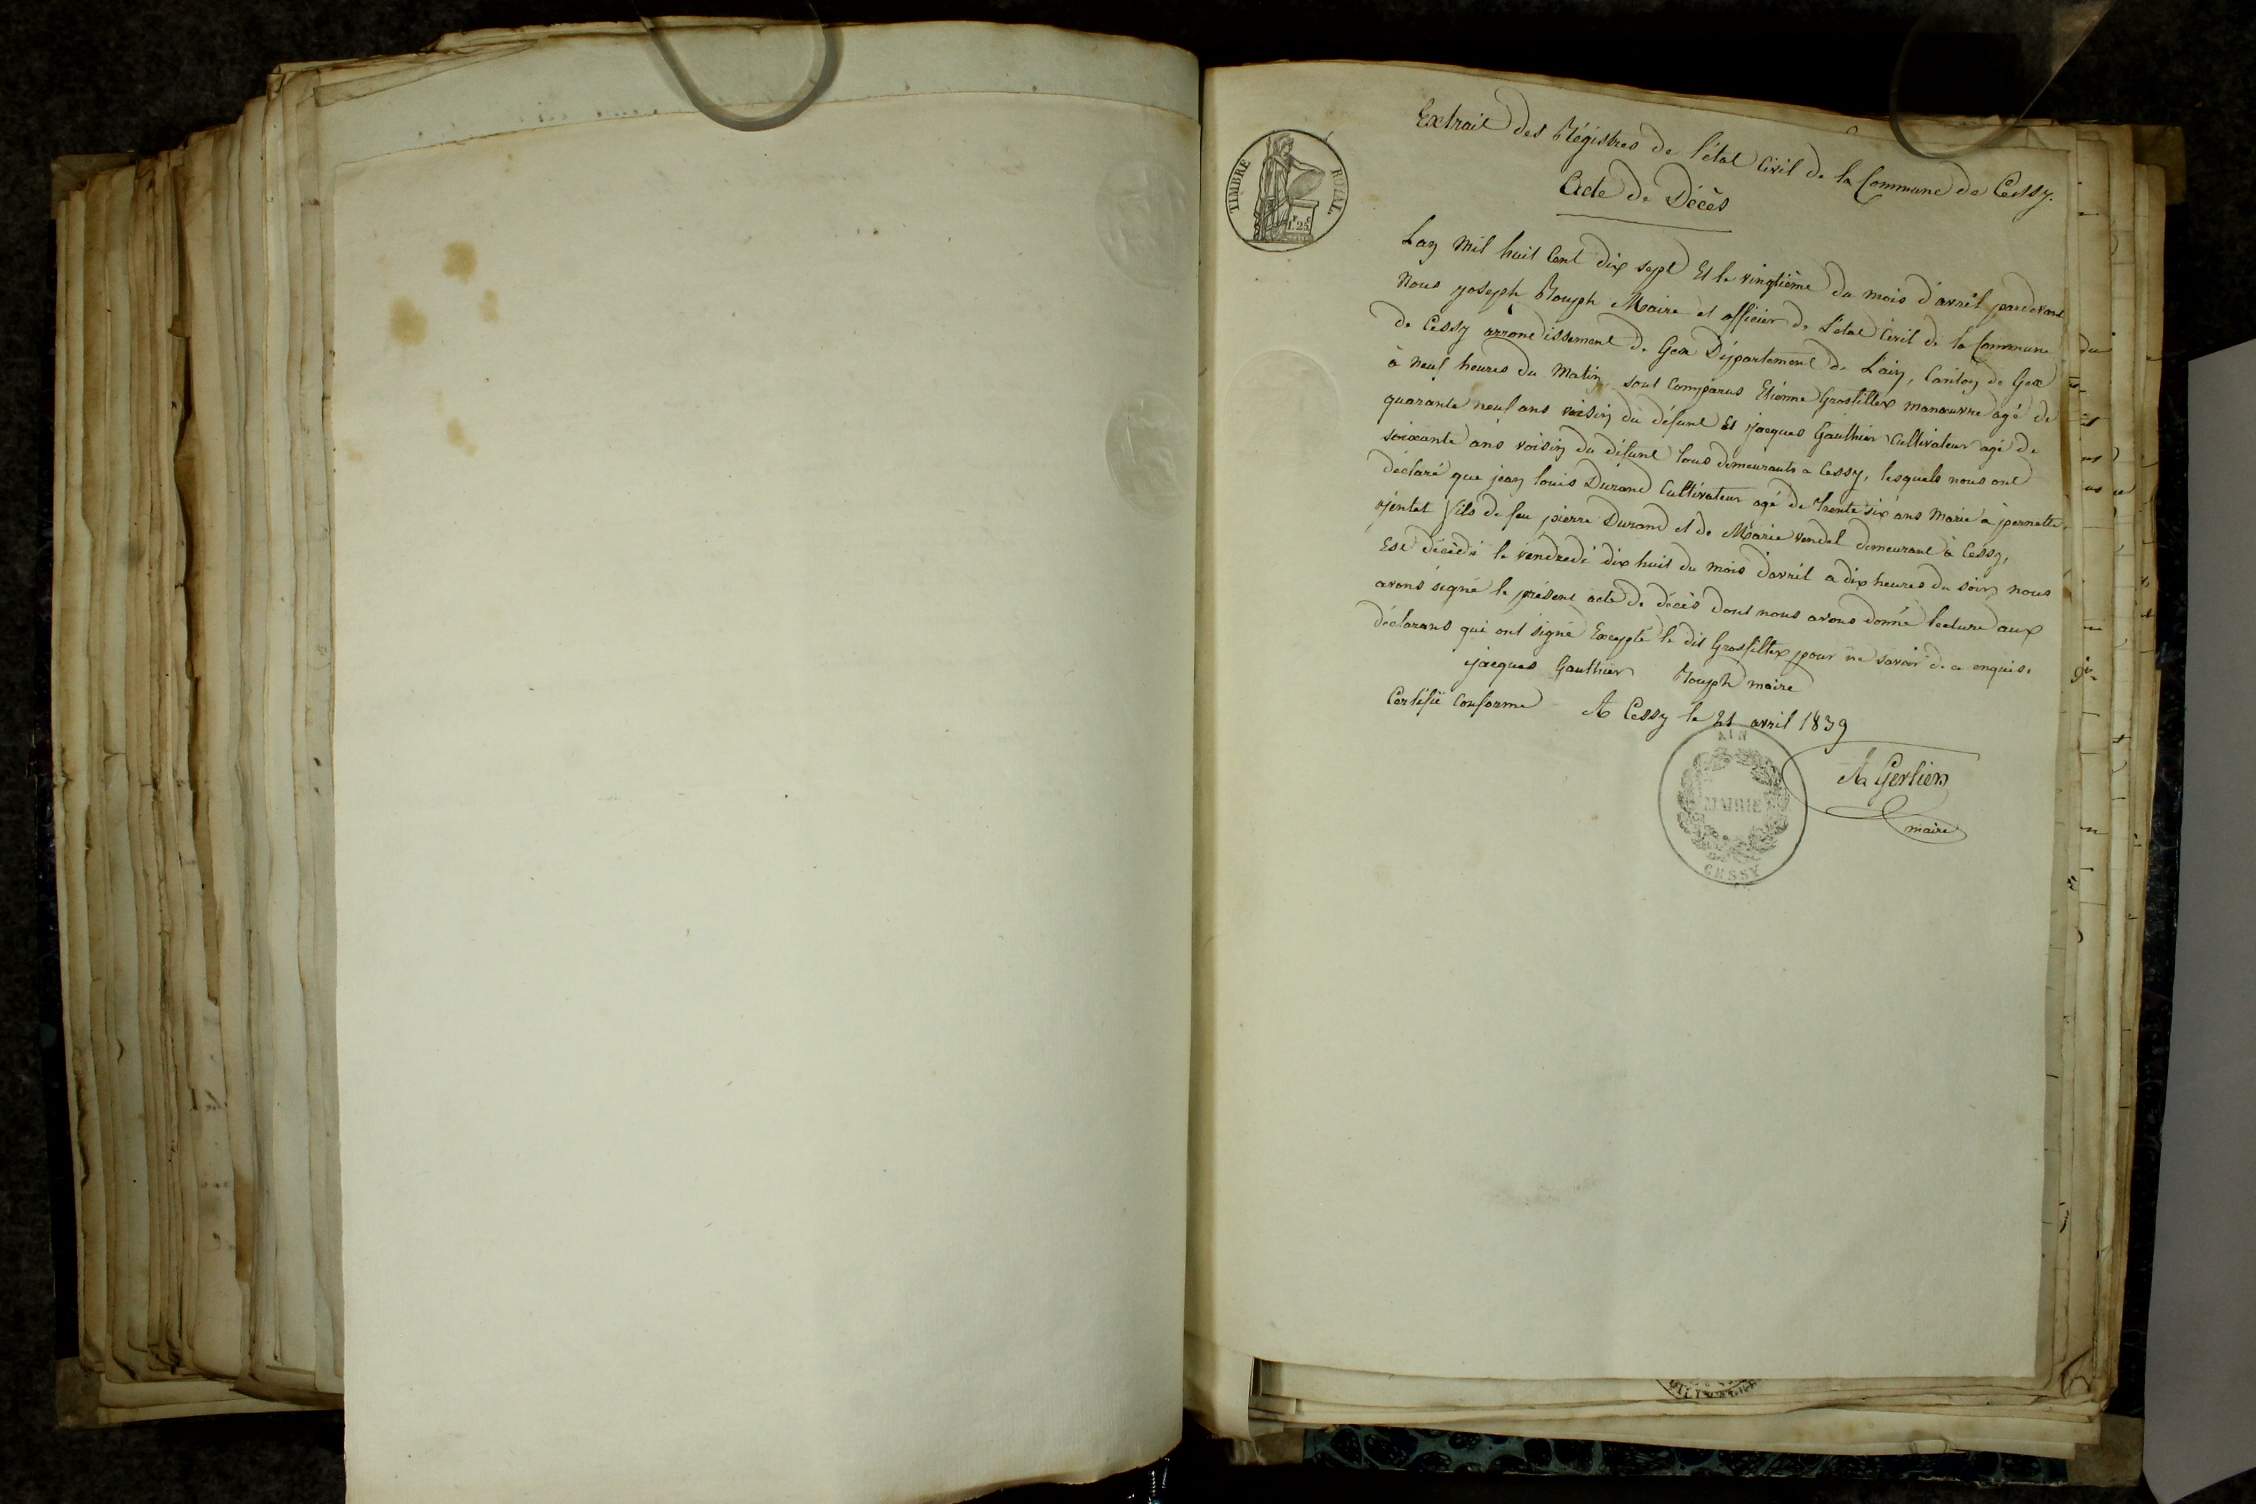 Extrait des Régistres de l'état Civil de la Commune de Cessy.
Acte de Décès
TIMBRE ROYAL
1.25
Lan mil huit Cent dix sept Et le vingtième du mois d'avril pardevant
Nous joseph Rouph Maire et officier de L'état Civil de la Commune
de Cessy arrondissement de Gex Département de L'ain, Canton de Gex
à neuf heures du Matin sont Comparus Etienne Grosfillex manœuvre agé de
quarante neuf ans voisin du défunt Et jacques Gauthier Cultivateur agé de
soixante ans voisin du défunt tous demeurants a Cessy, lesquels nous ont
déclaré que jean louis Durand Cultivateur agé de trente six ans Marié à pernette
fils de feu pierre Durand et de Marie vendel demeurant à Cessy,
Est décédé le vendredi dix huit du mois d'avril a dix heures du soir nous
avons signé le présent acte de décès dont nous avons donné lecture aux
déclarans qui ont signé Excepté le dit Grosfillex pour ne savoir de ce enquis.
jacques Gauthier Rouph maire
Certifié Conforme A Cessy le 21 avril 1839
AIN
MAIRIE
CESSY
maire